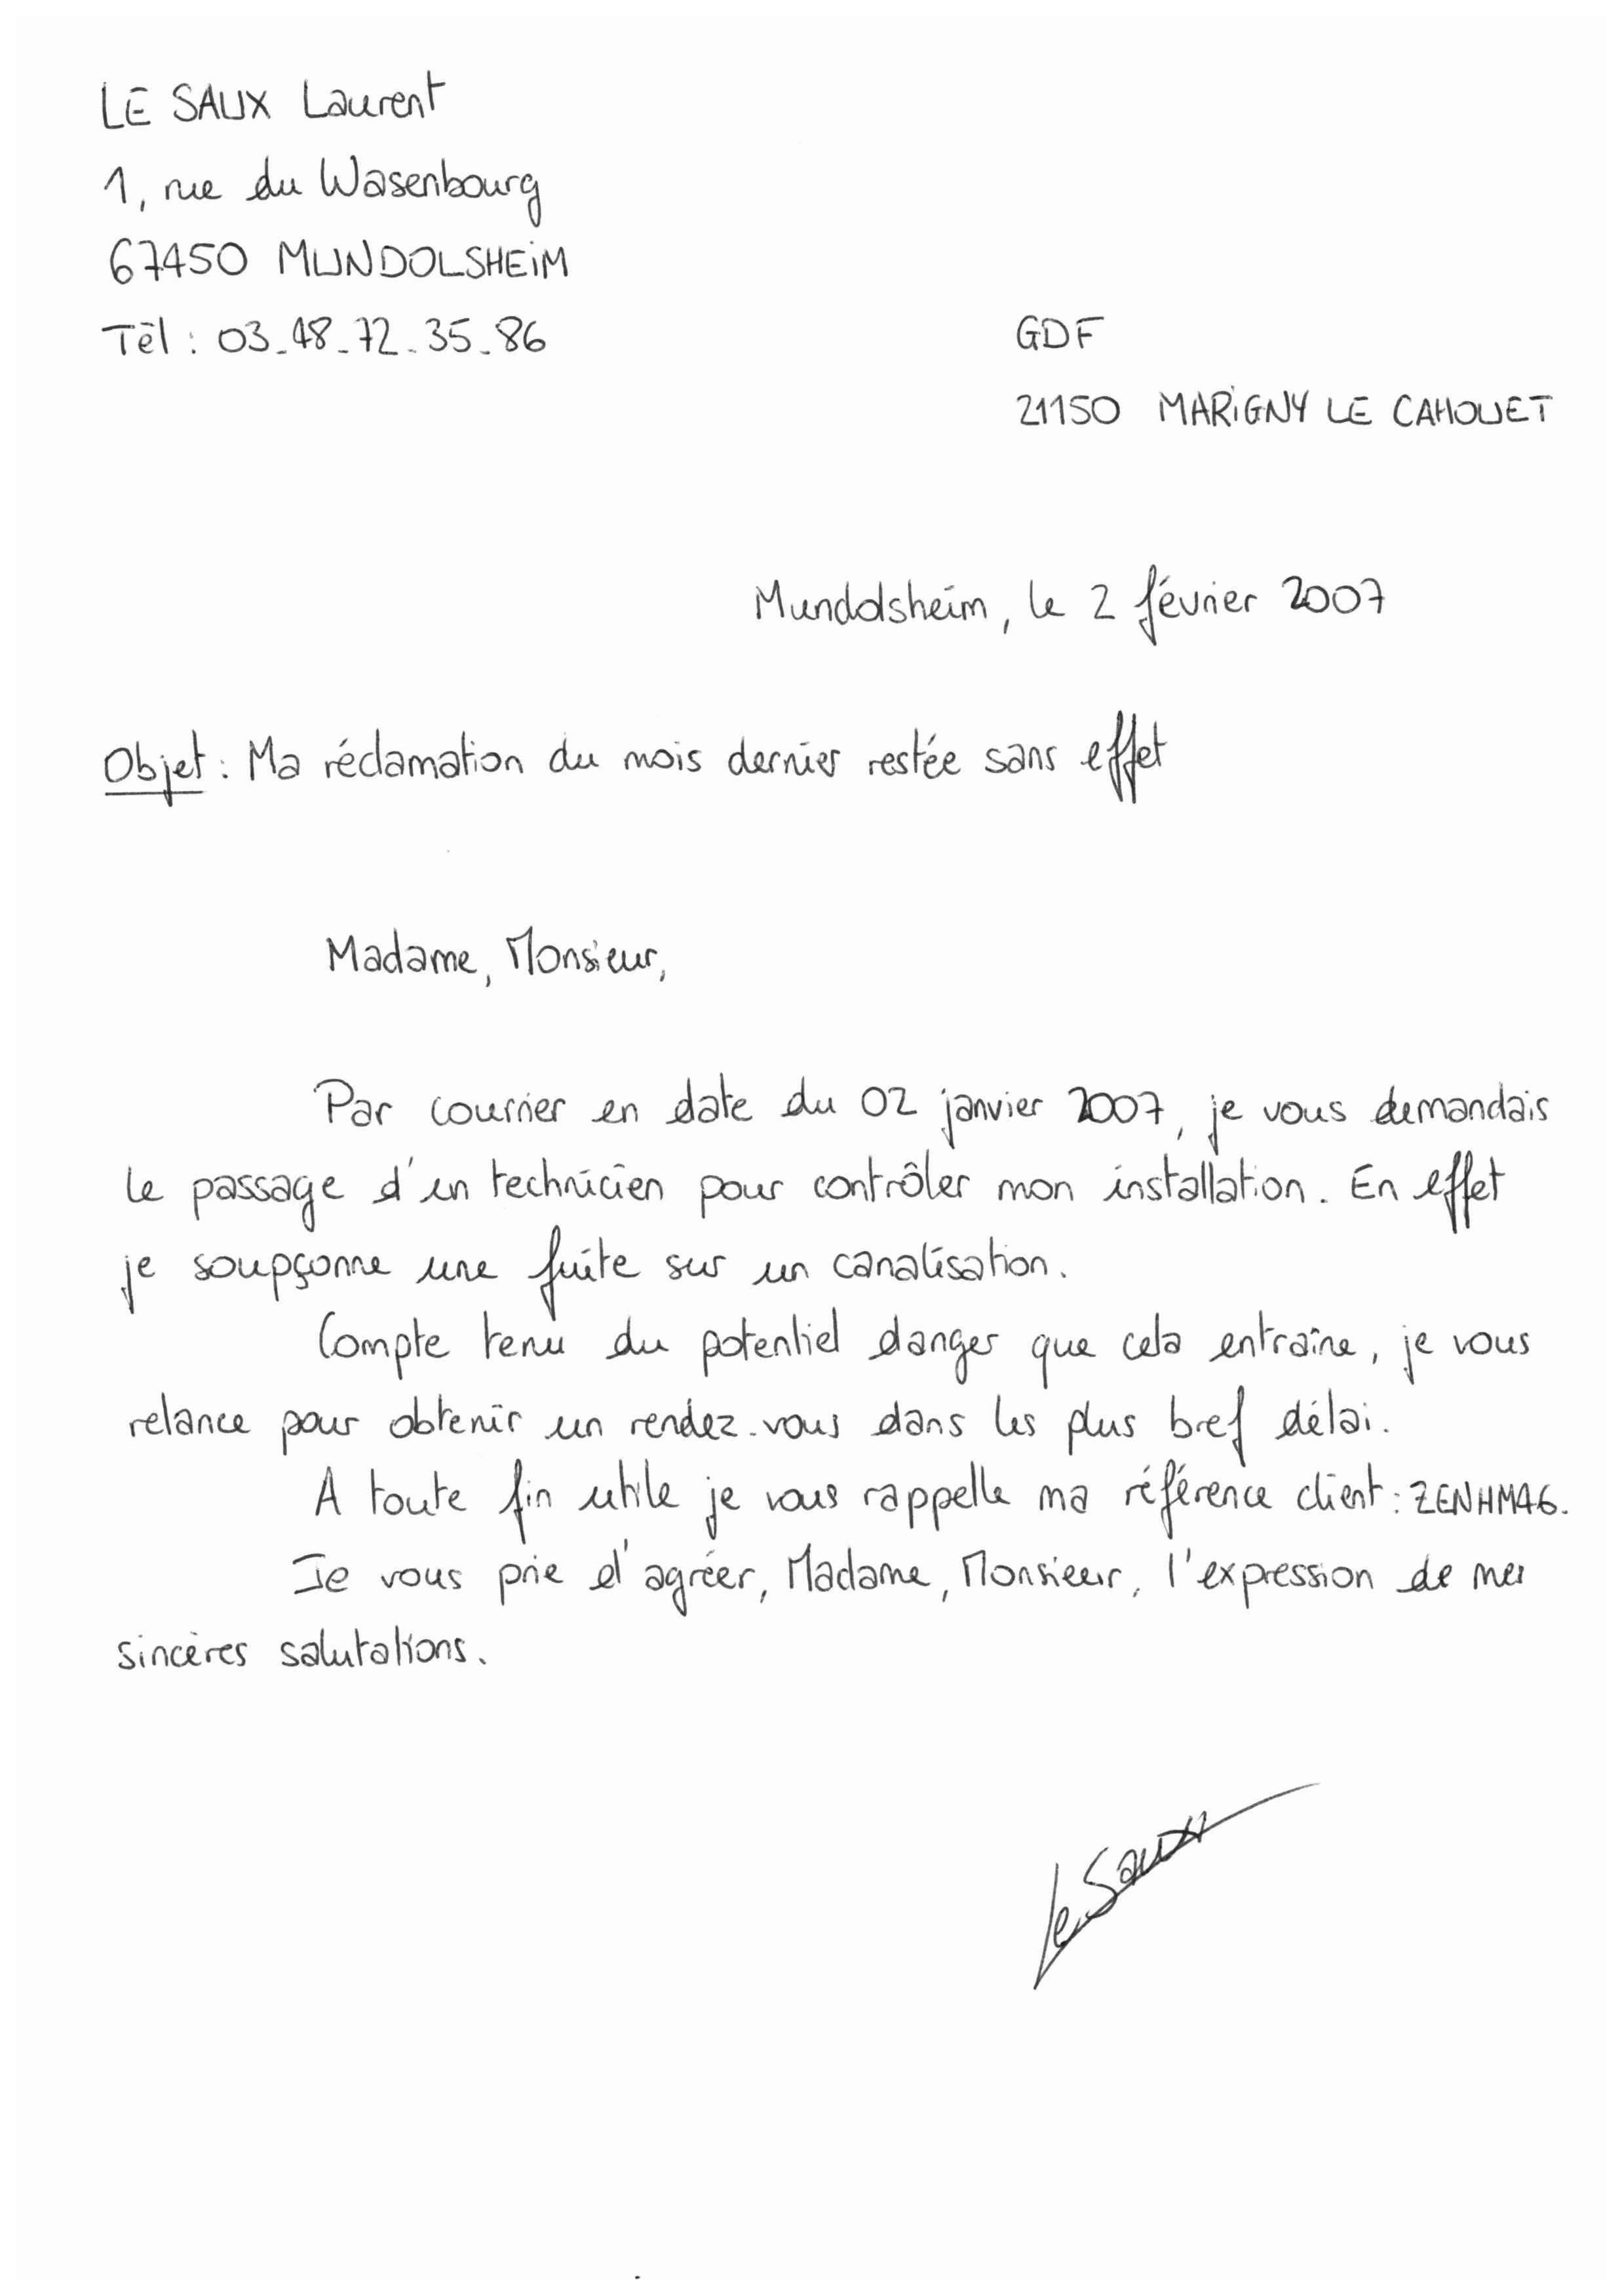 LE SAUX Laurent
1, rue du Wasenbourg
67450 MUNDOLSHEIM
Tél : 03_48_72_35_86
GDF
21150 MARIGNY LE CAHOUET
Mundolsheim, le 2 février 2007
Objet : Ma réclamation du mois dernier restée sans effet
Madame, Monsieur,
Par courrier en date du 02 janvier 2007, je vous demandais
le passage d'un technicien pour contrôler mon installation. En effet
je soupçonne une fuite sur un canalisation.
Compte tenu du potentiel danger que cela entraîne, je vous
relance pour obtenir un rendez-vous dans les plus bref délai.
A toute fin utile je vous rappelle ma référence client : ZENHM46.
Je vous prie d'agréer, Madame, Monsieur, l'expression de mes
sincères salutations.
Le Saux